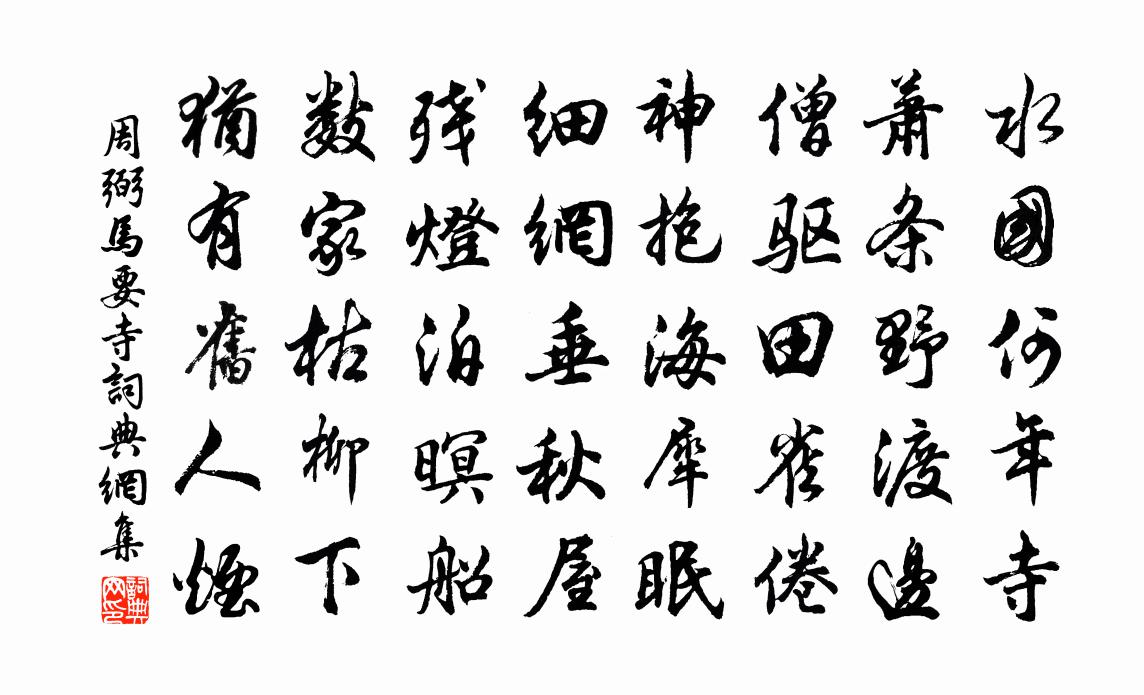 水國何年寺
萧条野渡邊
僧驱田雀倦
神抱海犀眠
细網垂秋屋
残燈泊暝船
數家枯柳下
猶有舊人煙
周弼馬要寺詞典網集
詞典網印